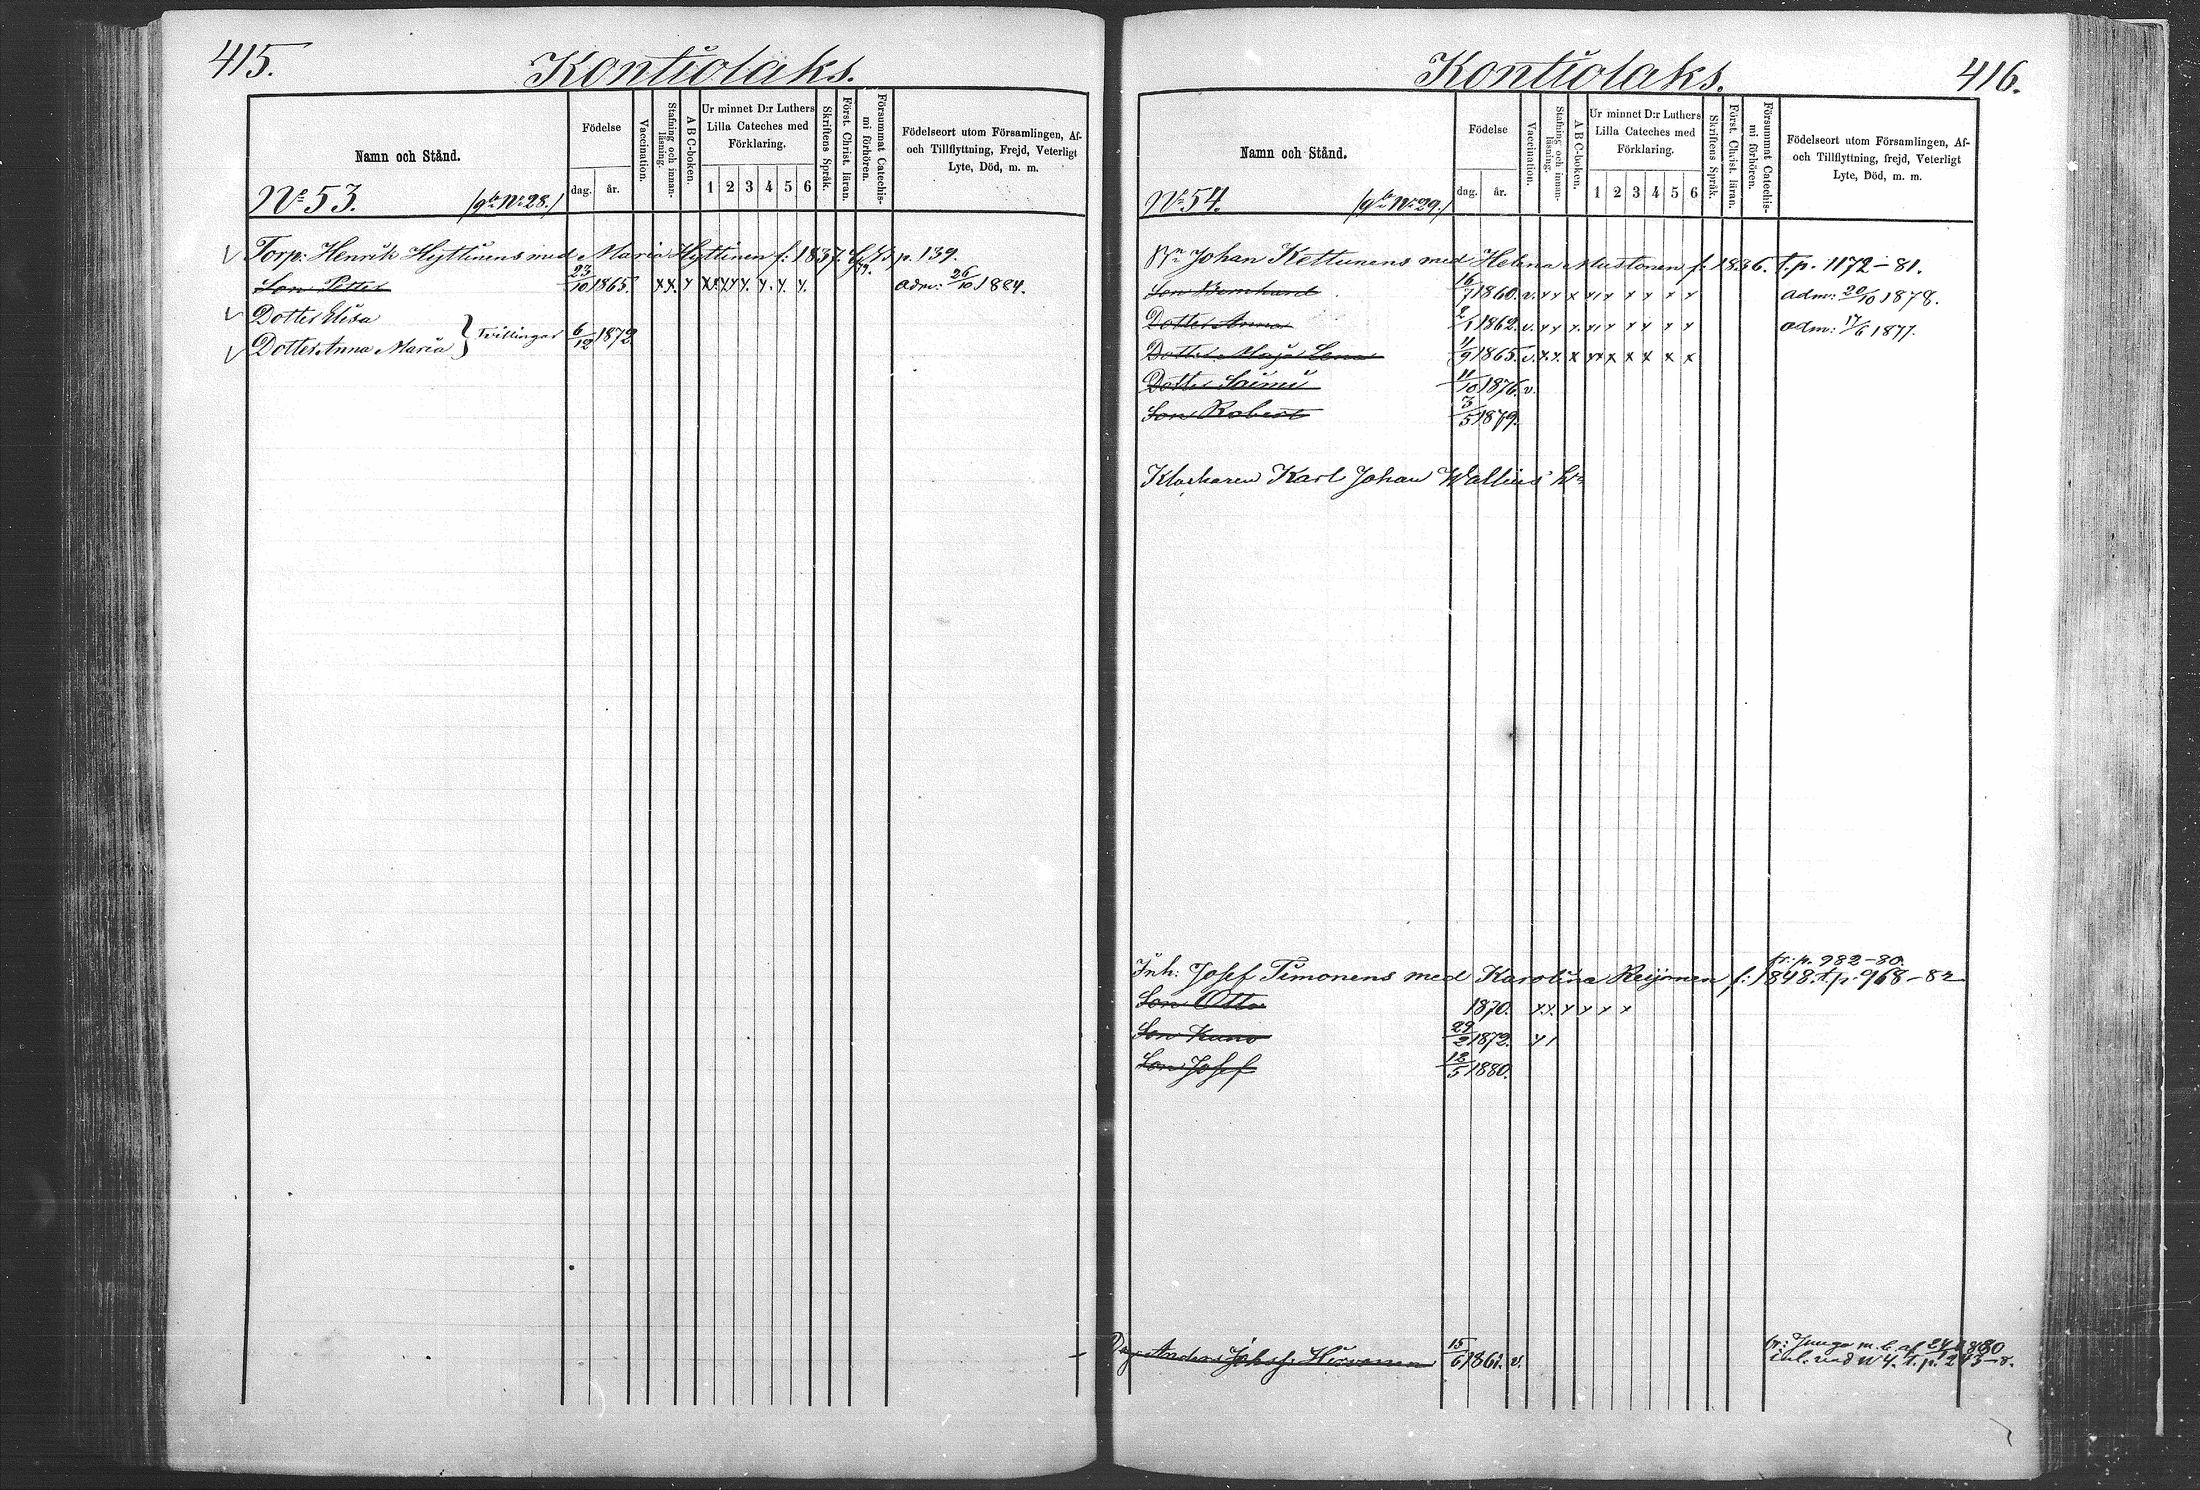 415.
Kontiolaks.
Namn och Stånd.
Födelse
dag. år.
Vaccination.
Stafning och innan-läsning.
A B C-boken.
Ur minnet D:r Luthers
Lilla Cateches med
Förklaring.
1 2 3 4 5 6
Skriftens Språk.
Först. Christ. läran.
Försummat Catechis-mi förhören.
Födelseort utom Församlingen, Af-
och Tillflyttning, Frejd, Veterligt
Lyte, Död, m. m.
No 53. /gla No 28./
Torp: Henrik Hyttinens med Maria Hyttinen f: 1837. p. 139.
Son Petter 23/10 1865. x x. x x x x x. x. x. x. adm: 26/10 1884.
Dotter Elisa
Dotter Anna Maria } Tvillingar 6/12 1872
416.
Kontiolaks.
Namn och Stånd.
Födelse
dag. år.
Vaccination.
Stafning och innan-läsning.
A B C-boken.
Ur minnet D:r Luthers
Lilla Cateches med
Förklaring.
1 2 3 4 5 6
Skriftens Språk.
Först. Christ. läran.
Försummat Catechis-mi förhören.
Födelseort utom Församlingen, Af-
och Tillflyttning, frejd, Veterligt
Lyte, Död, m. m.
No 54. /gla No 29./
Johan Kettunens med Helena Mustonen f: 1836. t. p. 1172-81.
Son Bernhard 16/7 1860. v. x x x x x x x x x adm: 20/10 1878.
Dotter Anna 2/1 1862. v. x x x. x x x x x x adm: 17/6 1877.
Dotter Maja Lena 11/9 1865. v. x x. x x x x x x x x
Dotter Saimi 11/10 1876. v.
Son Robert 3/5 1879.
Klockaren Karl Johan Wallius'
fr. p. 982-80.
Inh: Josef Timonens med Karolina Reijonen f: 1848. t. p. 968-82
Son Otto 1870. x x. x x x x
Son Kuno 29/2 1872. x 1
Son Josef 12/5 1880.
Anders Johsf. Hirvonen 15/6 1861. v. fr: Juuga m. b. af 1880
inl. und N 4. t. p. 243